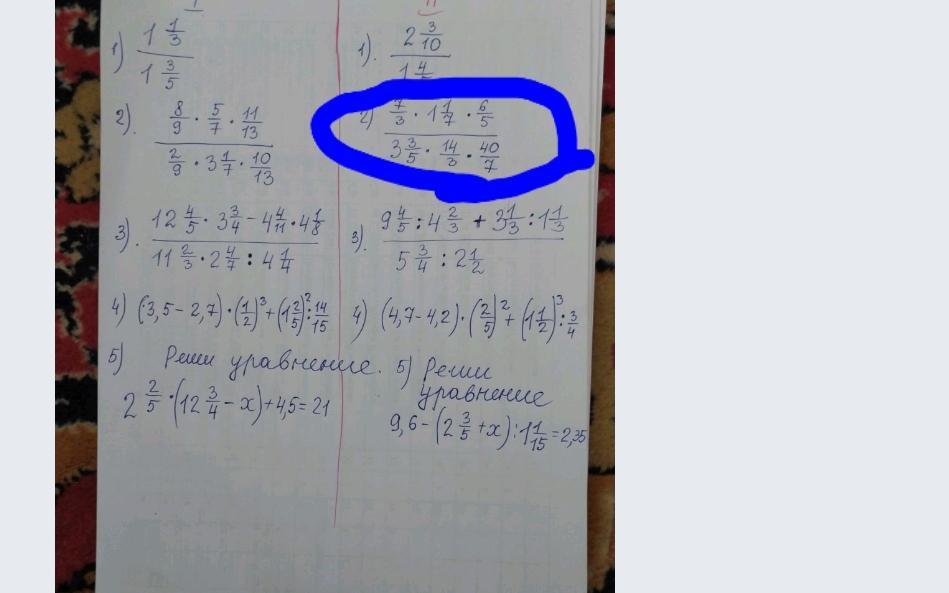 I
1) 1 1/3 / 1 3/5
2). 8/9 · 5/7 · 11/13 / 2/9 · 3 1/7 · 10/13
3). 12 4/5 · 3 3/4 - 4 4/11 · 4 1/8 / 11 2/3 · 2 4/7 : 4 1/4
4) (3,5 - 2,7) · (1/2)³ + (1 2/5)² : 14/15
5) Реши уравнение.
2 2/5 · (12 3/4 - x) + 4,5 = 21
II
1). 2 3/10 / 1 4/
2) 7/3 · 1 1/7 · 6/5 / 3 3/5 · 14/3 · 40/7
3). 9 4/5 : 4 2/3 + 3 1/3 : 1 1/3 / 5 3/4 : 2 1/2
4) (4,7 - 4,2) · (2/5)² + (1 1/2)³ : 3/4
5) Реши
уравнение
9,6 - (2 3/5 + x) : 1 1/15 = 2,35